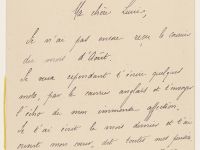 Ma chère Lucie,
Je n'ai pas encore reçu le courrier
du mois d'Août.
Je veux cependant t'écrire quelques
mots, par le courrier anglais et t'envoyer
l'écho de mon immense affection.
Je t'ai écrit le mois dernier et t'ai
ouvert mon cœur, dit toutes mes pensées